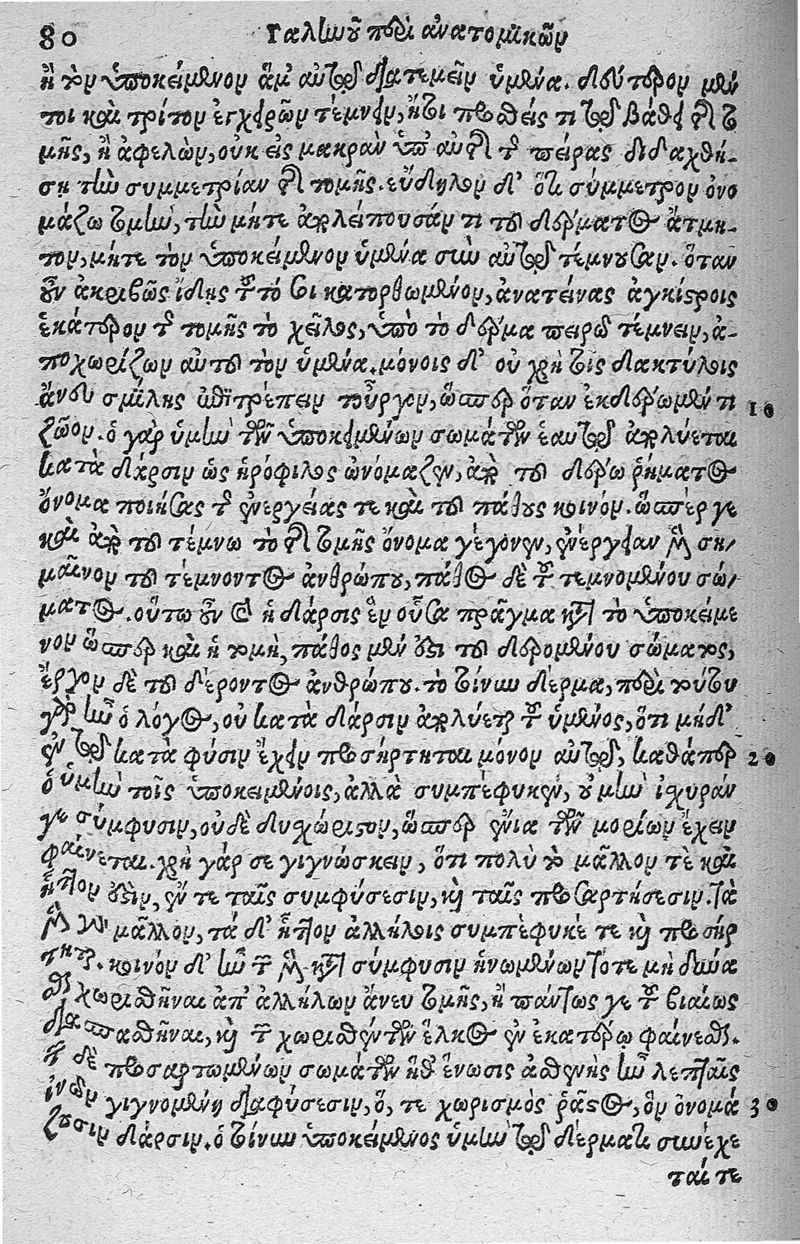 80 Γαλίωοῦ περὶ ἀνατομικῶν
ἢ τὸν ὑποκείμενον ἅμ' αὐτῷ διατεμεῖν ὑμένα. δεύτερον μέν
τοι καὶ τρίτον ἐγχειρῶν τέμνειν, ἤτοι προσθείς τι τῷ βάθει τῆς το
μῆς, ἢ ἀφελὼν, οὐκ εἰς μακρὰν ὑπ' αὐτῆς τῆς πείρας διδαχθή-
σῃ τὴν συμμετρίαν τῆς τομῆς. εὔδηλον δ' ὅτι σύμμετρον ὀνο
μάζω τομὴν, τὴν μήτε ἀπολείπουσάν τι τοῦ δέρματος ἄτμη-
τον, μήτε τὸν ὑποκείμενον ὑμένα σὺν αὐτῷ τέμνουσαν. ὅταν
οὖν ἀκριβῶς ἴδῃς τοῦτό σοι κατορθωμένον, ἀνατείνας ἀγκίστροις
ἑκάτερον τῆς τομῆς τὸ χεῖλος, ὑπὸ τὸ δέρμα πειρῶ τέμνειν, ἀ-
ποχωρίζων αὐτοῦ τὸν ὑμένα. μόνοις δ' οὐ χρὴ τοῖς δακτύλοις
ἄνευ σμίλης ἐπιτρέπειν τοὖργον, ὥσπερ ὅταν ἐκδέρωμέν τι 10
ζῶον. ὁ γὰρ ὑμὴν τῶν ὑποκειμένων σωμάτων ἑαυτῷ ἀπολύεται
κατὰ δάρσιν ὡς ἡρόφιλος ὠνόμαζεν, ἀπὸ τοῦ δέρω ῥήματος
ὄνομα ποιήσας τῆς ἐνεργείας τε καὶ τοῦ πάθους κοινόν. ὥσπερ γε
καὶ ἀπὸ τοῦ τέμνω τὸ τῆς τομῆς ὄνομα γέγονεν, ἐνέργειαν μὲν ση-
μαῖνον τοῦ τέμνοντος ἀνθρώπου, πάθος δὲ τοῦ τεμνομένου σώ-
ματος. οὕτω οὖν καὶ ἡ δάρσις ἓν οὖσα πρᾶγμα κατὰ τὸ ὑποκείμε
νον ὥσπερ καὶ ἡ τομὴ, πάθος μέν ἐστι τοῦ δερομένου σώματος,
ἔργον δὲ τοῦ δέροντος ἀνθρώπου. τὸ τοίνυν δέρμα, περὶ τούτου
γὰρ ἦν ὁ λόγος, οὐ κατὰ δάρσιν ἀπολύεται τοῦ ὑμένος, ὅτι μηδ'
ἐν τῷ κατὰ φύσιν ἔχειν προσήρτηται μόνον αὐτῷ, καθάπερ 20
ὁ ὑμὴν τοῖς ὑποκειμένοις, ἀλλὰ συμπέφυκεν, οὐ μὴν ἰσχυράν
γε σύμφυσιν, οὐδὲ δυσχώριστον, ὥσπερ ἔνια τῶν μορίων ἔχειν
φαίνεται. χρὴ γάρ σε γιγνώσκειν, ὅτι πολὺ τὸ μᾶλλον τὲ καὶ
ἧττον ἐστὶν, ἔν τε ταῖς συμφύσεσιν, καὶ ταῖς προσαρτήσεσιν. τὰ
μὲν γὰρ μᾶλλον, τὰ δ' ἧττον ἀλλήλοις συμπέφυκέ τε καὶ προσήρ
τηται. κοινὸν δ' ἦν τῶν μὲν κατὰ σύμφυσιν ἡνωμένων τότε μὴ δύνα
σθαι χωρισθῆναι ἀπ' ἀλλήλων ἄνευ τομῆς, ἢ πάντως γε τοῦ βιαίως
διασπασθῆναι, καὶ τῶν χωρισθέντων ἕλκος ἐν ἑκατέρῳ φαίνεσθαι.
τῶν δὲ προσαρτωμένων σωμάτων ἥδ' ἕνωσις ἀσθενὴς ἦν λεπταῖς
ἰνῶν γιγνομένη διαφύσεσιν, ὅ, τε χωρισμὸς ῥᾷστος, ὃν ὀνομά 30
ζουσιν δάρσιν. ὁ τοίνυν ὑποκείμενος ὑμὴν τῷ δέρματι συνέχε
ταί τε